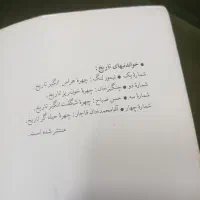 • خواندنیهای تاریخ:
شمارهٔ یک • تیمور لنگ: چهرهٔ هراس انگیز تاریخ.
شمارهٔ دو • چنگیزخان: چهرهٔ خونریز تاریخ.
شمارهٔ سه • حسن صباح: چهرهٔ شگفت انگیز تاریخ.
شمارهٔ چهار • آقامحمدخان قاجار: چهرهٔ حیله گر تاریخ.
منتشر شده است.